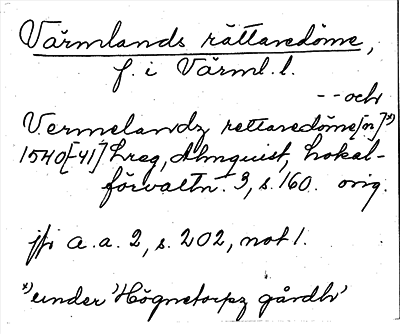 Värmlands rättaredöme,
f. i Värml. l.
-- och
Vermelandz rettaredöme[n]*)
1540[-41] Lreg, Almquist, Lokal-
förvaltn. 3, s. 160. orig.
jfr a. a. 2, s. 202, not 1.
*) under 'Högnetorpz gårdh'